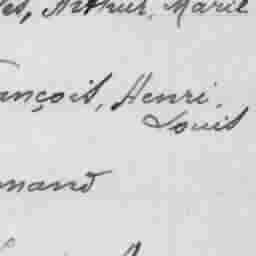 es, Arthur, Marie
ançois, Henri,
Louis
nand